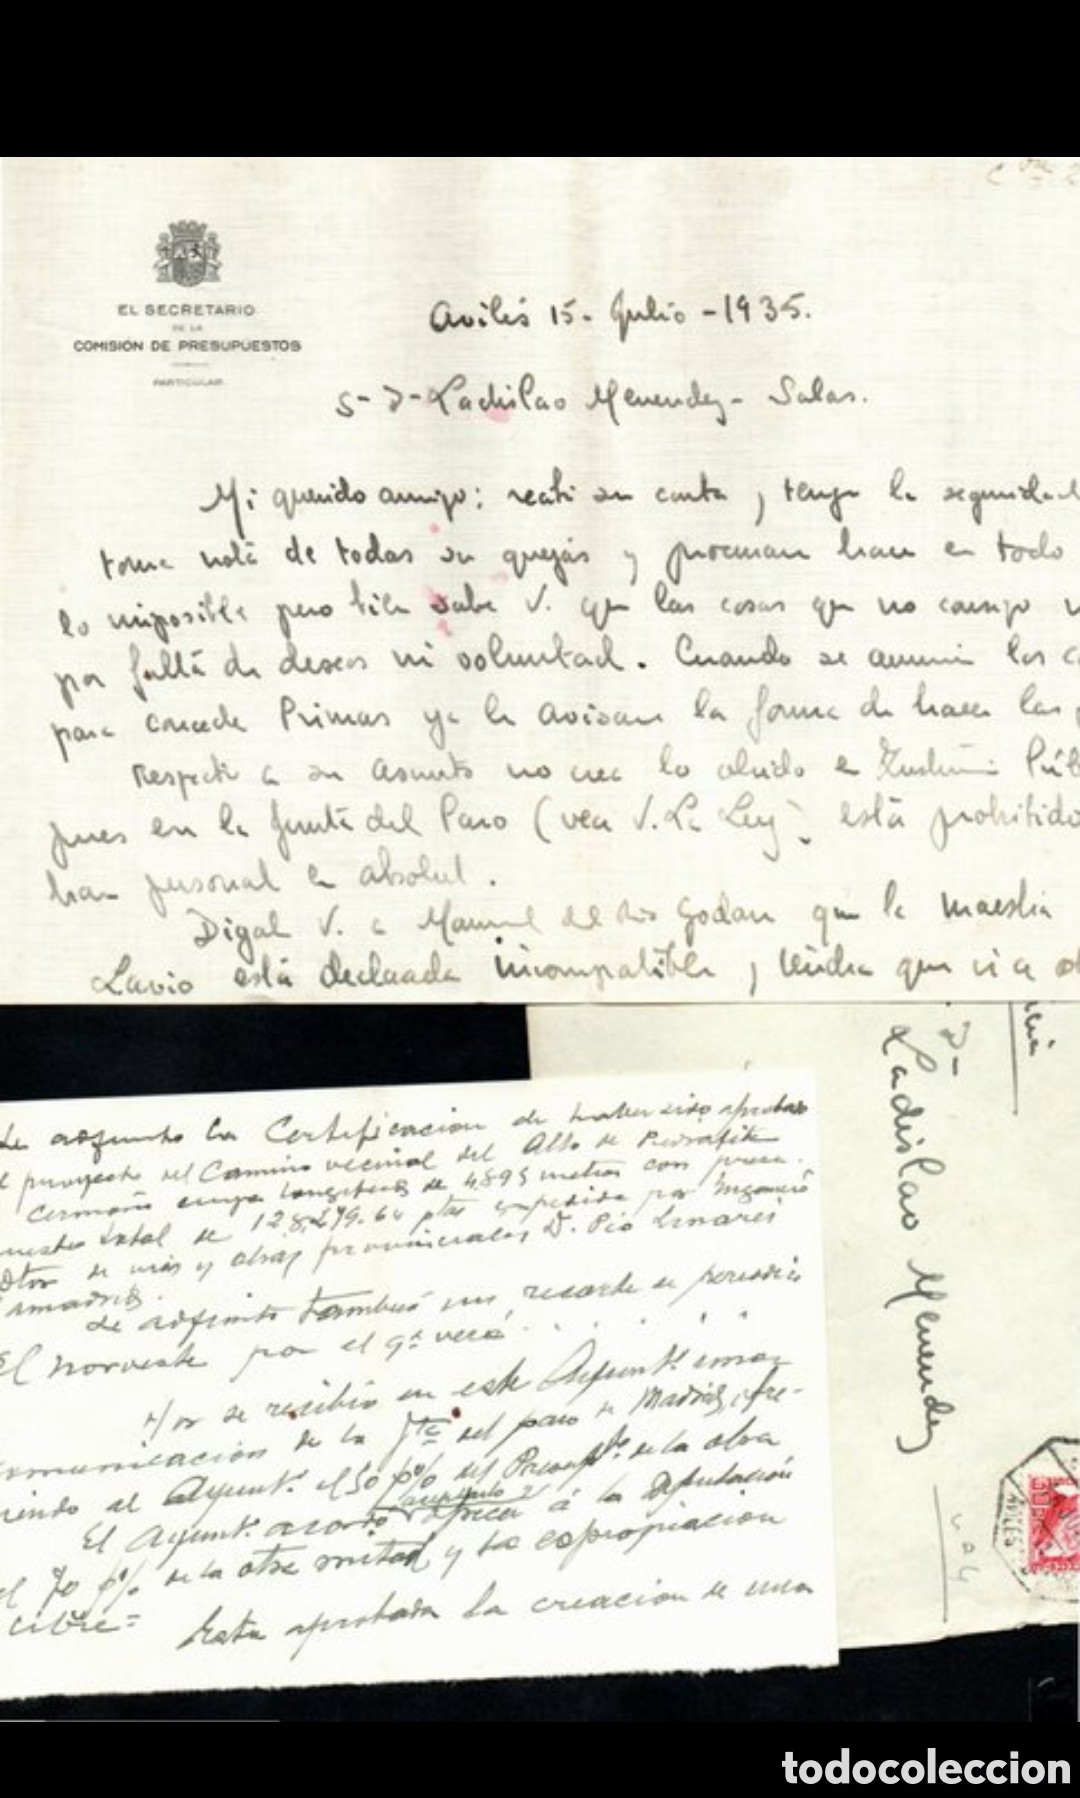 EL SECRETARIO
DE LA
COMISIÓN DE PRESUPUESTOS
PARTICULAR
Avilés 15- Julio -1935.
S- D- Ladislao Menendez- Salas.
Mi querido amigo: recibi su carta y tenga la seguridad
tomé nota de todas su quejas y procurare hacer en todo
lo imposible pero bien sabe V. que las cosas que no consigo
por falta de deseos ni voluntad. Cuando se anuncie los
para conceder Primas ya le avisare la forma de hacer las
Respecto a su asunto no crea lo olvido en
pues en la Junta del Paro (vea V. La Ley) está prohibido
personal en absoluto.
Digale V. a Manuel del Rio Godan que la maestra
Lavio está declarada incompatible y tendra que
D-
Ladislao Menendez
AVILES
Se adjunta la Certificacion de haber sido aprobado
proyecto del Camino vecinal del Alto de Piedrafita
Cermoño cuya longitud de 4.895 metros con
total de 128,279.64 ptas expedida por Ingeniero
de vias y obras provinciales D. Pio Linares
Se adjunta tambien un recorte de periodico
El Noroeste por el q.e verá . . . . . .
Hoy se recibio en este Ayunt.o una
comunicacion de la Jta del paro de Madrid,
al Ayunt.o el 50 p% del Presup.to de la obra
El Ayunt.o acordó ofrecer á la Diputacion
el 70 p% de la otra mitad y la expropiacion
libre=
Esta aprobada la creacion de una
todocoleccion